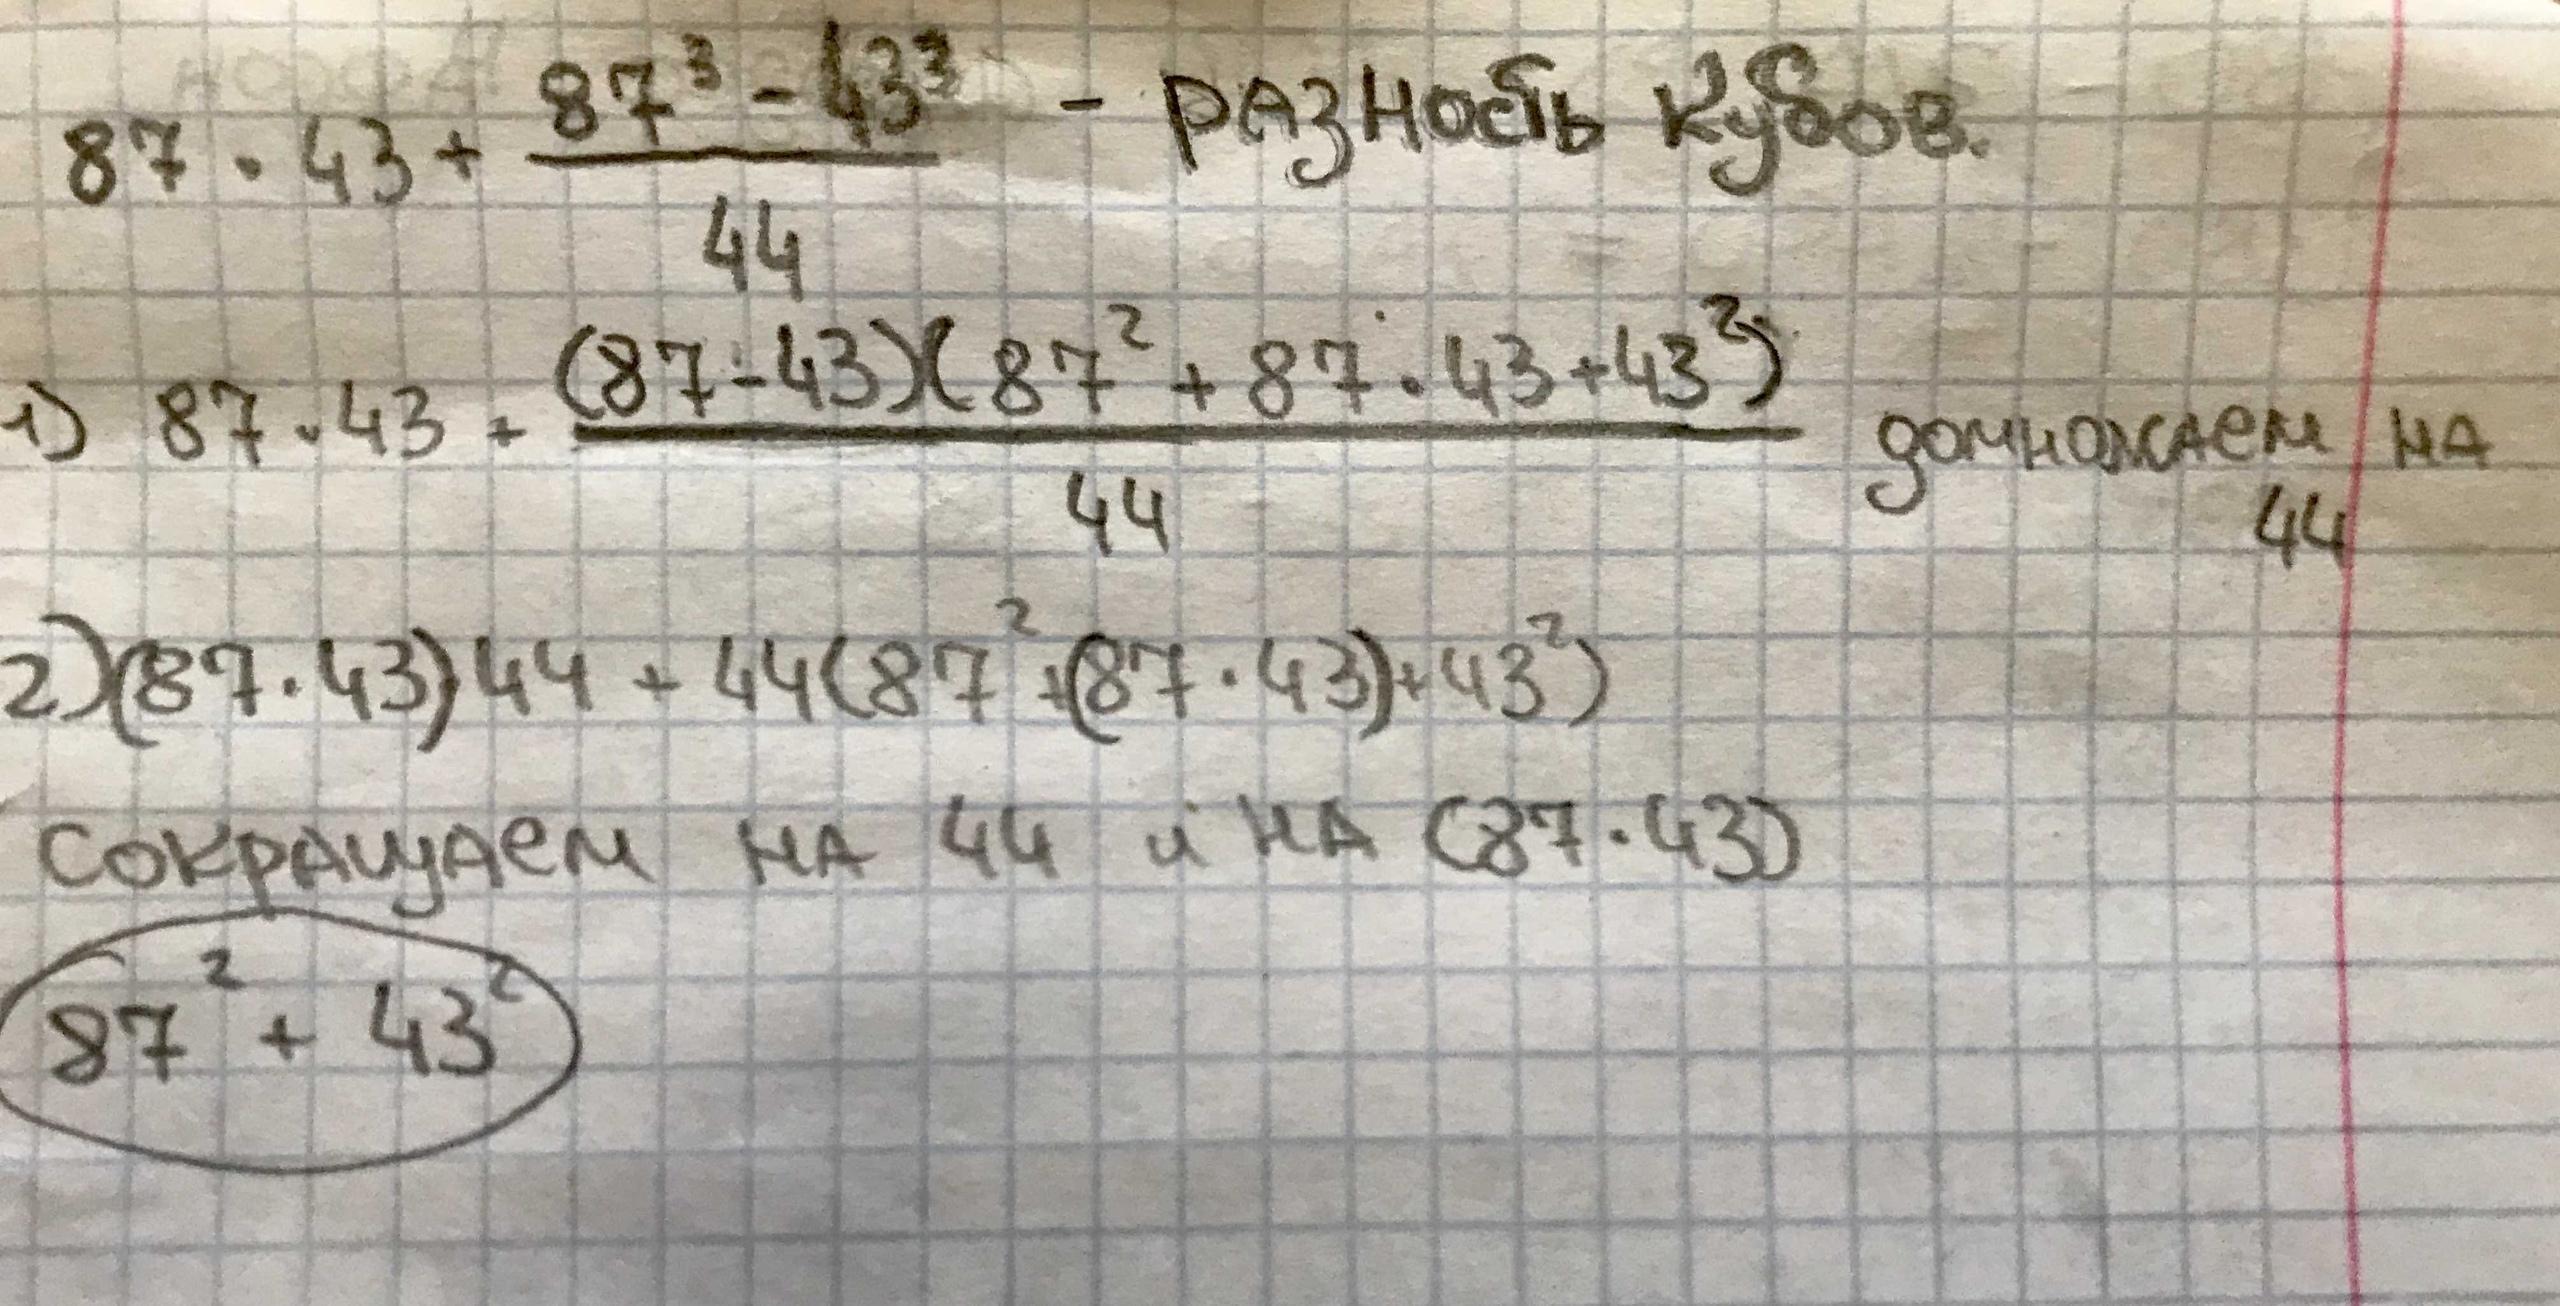 87 · 43 + (87³ - 43³)/44 - разность кубов.
1) 87 · 43 + ((87-43)(87² + 87 · 43 + 43²))/44 домножаем на 44
2) (87 · 43) 44 + 44(87² + (87 · 43) + 43²)
сокращаем на 44 и на (87 · 43)
87² + 43²